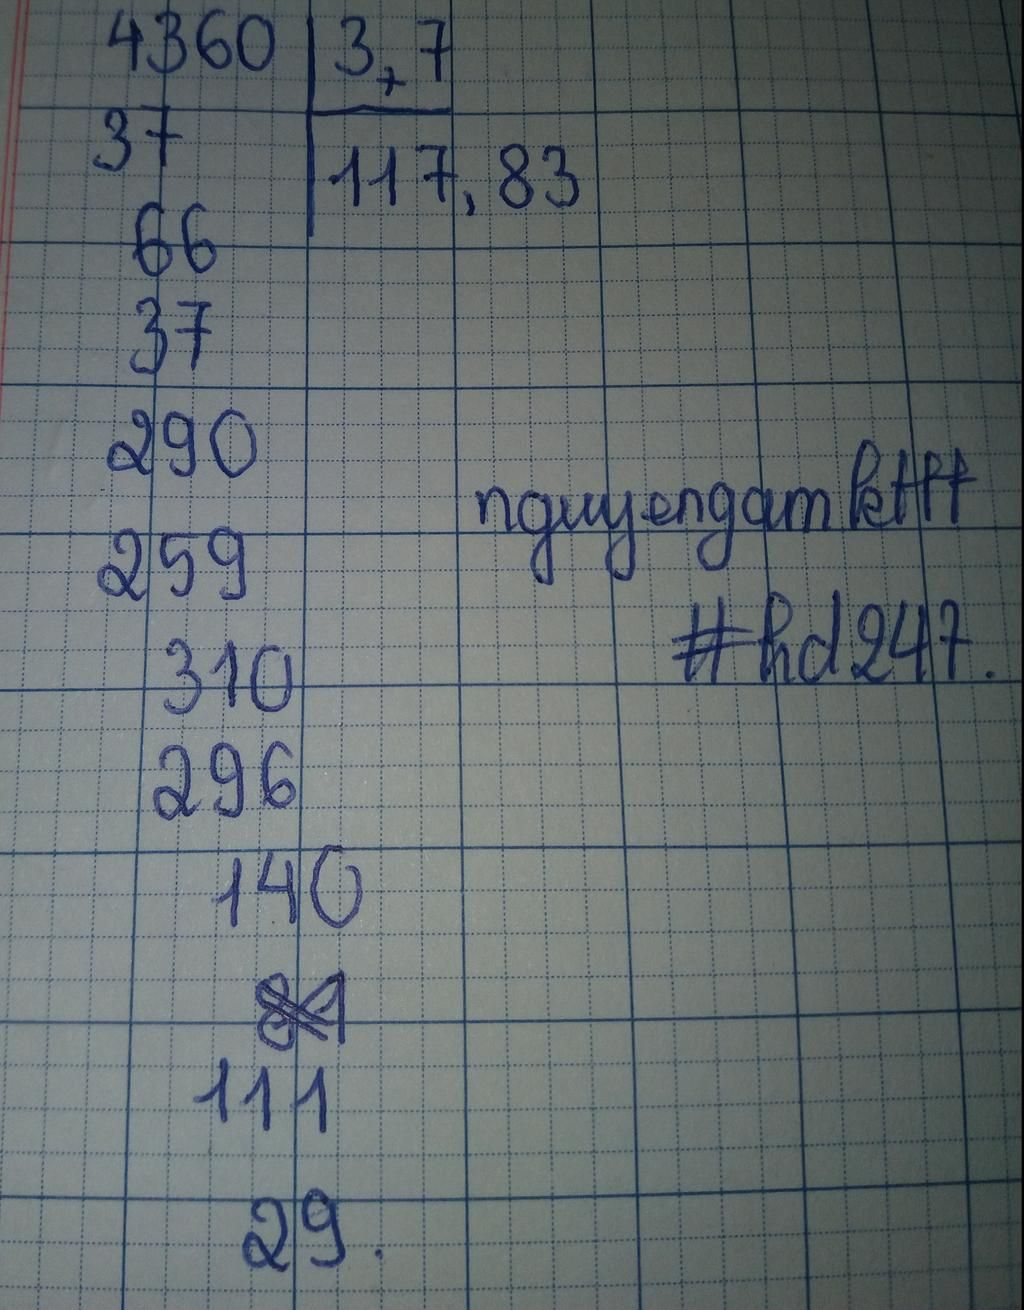 4360 3,7
37 117,83
66
37
290
259
nguyengamktft
310
#hd247.
296
140
111
29.